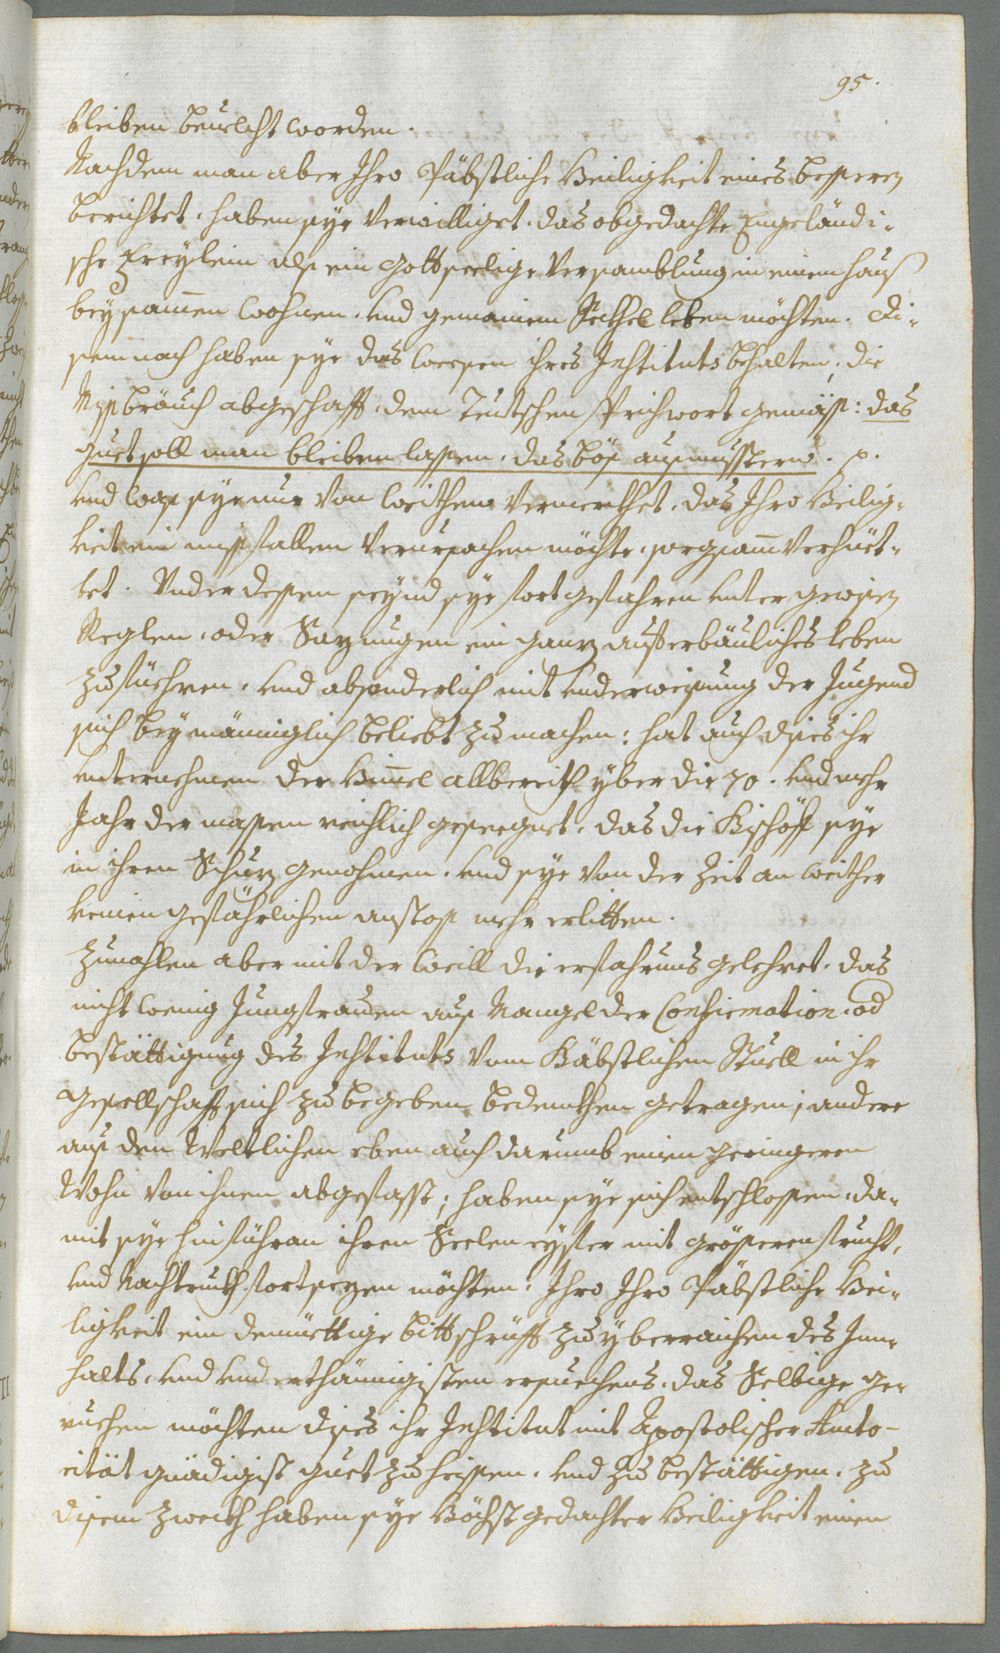 95.
bleiben beurlcht worden.
Nachdem man aber Ihro Päbstliche Heiligkeit eines besseren
berichtet, haben sye verwilliget, das obgedachte Engeländi-
sche Freylein als ein gottseelige Versamblung in einem hauß
beysam̄en wohnen, und gemainem Seckhel leben möchten. Di-
sem nach haben sye das weesen ihres Instituts behalten, die
Mißbräuch abgeschafft, dem Teutschen Sprichwort gemäß: das
guet soll man bleiben lassen, das böß ausmusstern. p.
und was sye nur von weithem vermerkhet, das Ihro Heilig-
keit ein mißfallen verursachen möchte, sorgsam̄ verhüet-
tet. Under dessen seynd sye fortgefahren unter gewissen
Reglen, oder Sazungen ein ganz aufferbäuliches leben
zu füehren, und absonderlich mit underweisung der Jugend
sich bey mäniglich beliebt zu machen: hat auch dises ihr
unternehmen der Him̄el allbereith yber die 70. und mehr
Jahr der massen reichlich geseegnet, das die Bischöff sye
in ihren Schuz genohmen, und sye von der Zeit an weither
keinen gefährlichen anstoß mehr erlitten.
Zumahlen aber mit der Weill die erfahrnus gelehret, das
nicht wenig Jungfrauen aus Mangel der Confirmation, od
bestättigung des Instituts vom Päbstlichen Stuell in ihr
gesellschafft sich zu begeben bedenkhen getragen; andere
aus den Weltlichen eben auch darumb einen geringeren
Wohn von ihnen abgefasst; haben sye sich entschlossen, da-
mit sye hinführan ihren Seelen eyfer mit grösseren frucht,
und Nachtrukh fortsezen möchten, Ihro Ihro Päbstliche Hei-
ligkeit ein demüettige bittschrüfft zu yberraichen des Inn-
halts, und underthänigisten ersuechens, das Selbige ge-
ruchen möchten dises ihr Institut mit Apostolischer Auto-
rität gnädigist guet zu heissen, und zu bestättigen. zu
disem zweckh haben sye Höchst gedachter Heiligkeit einen